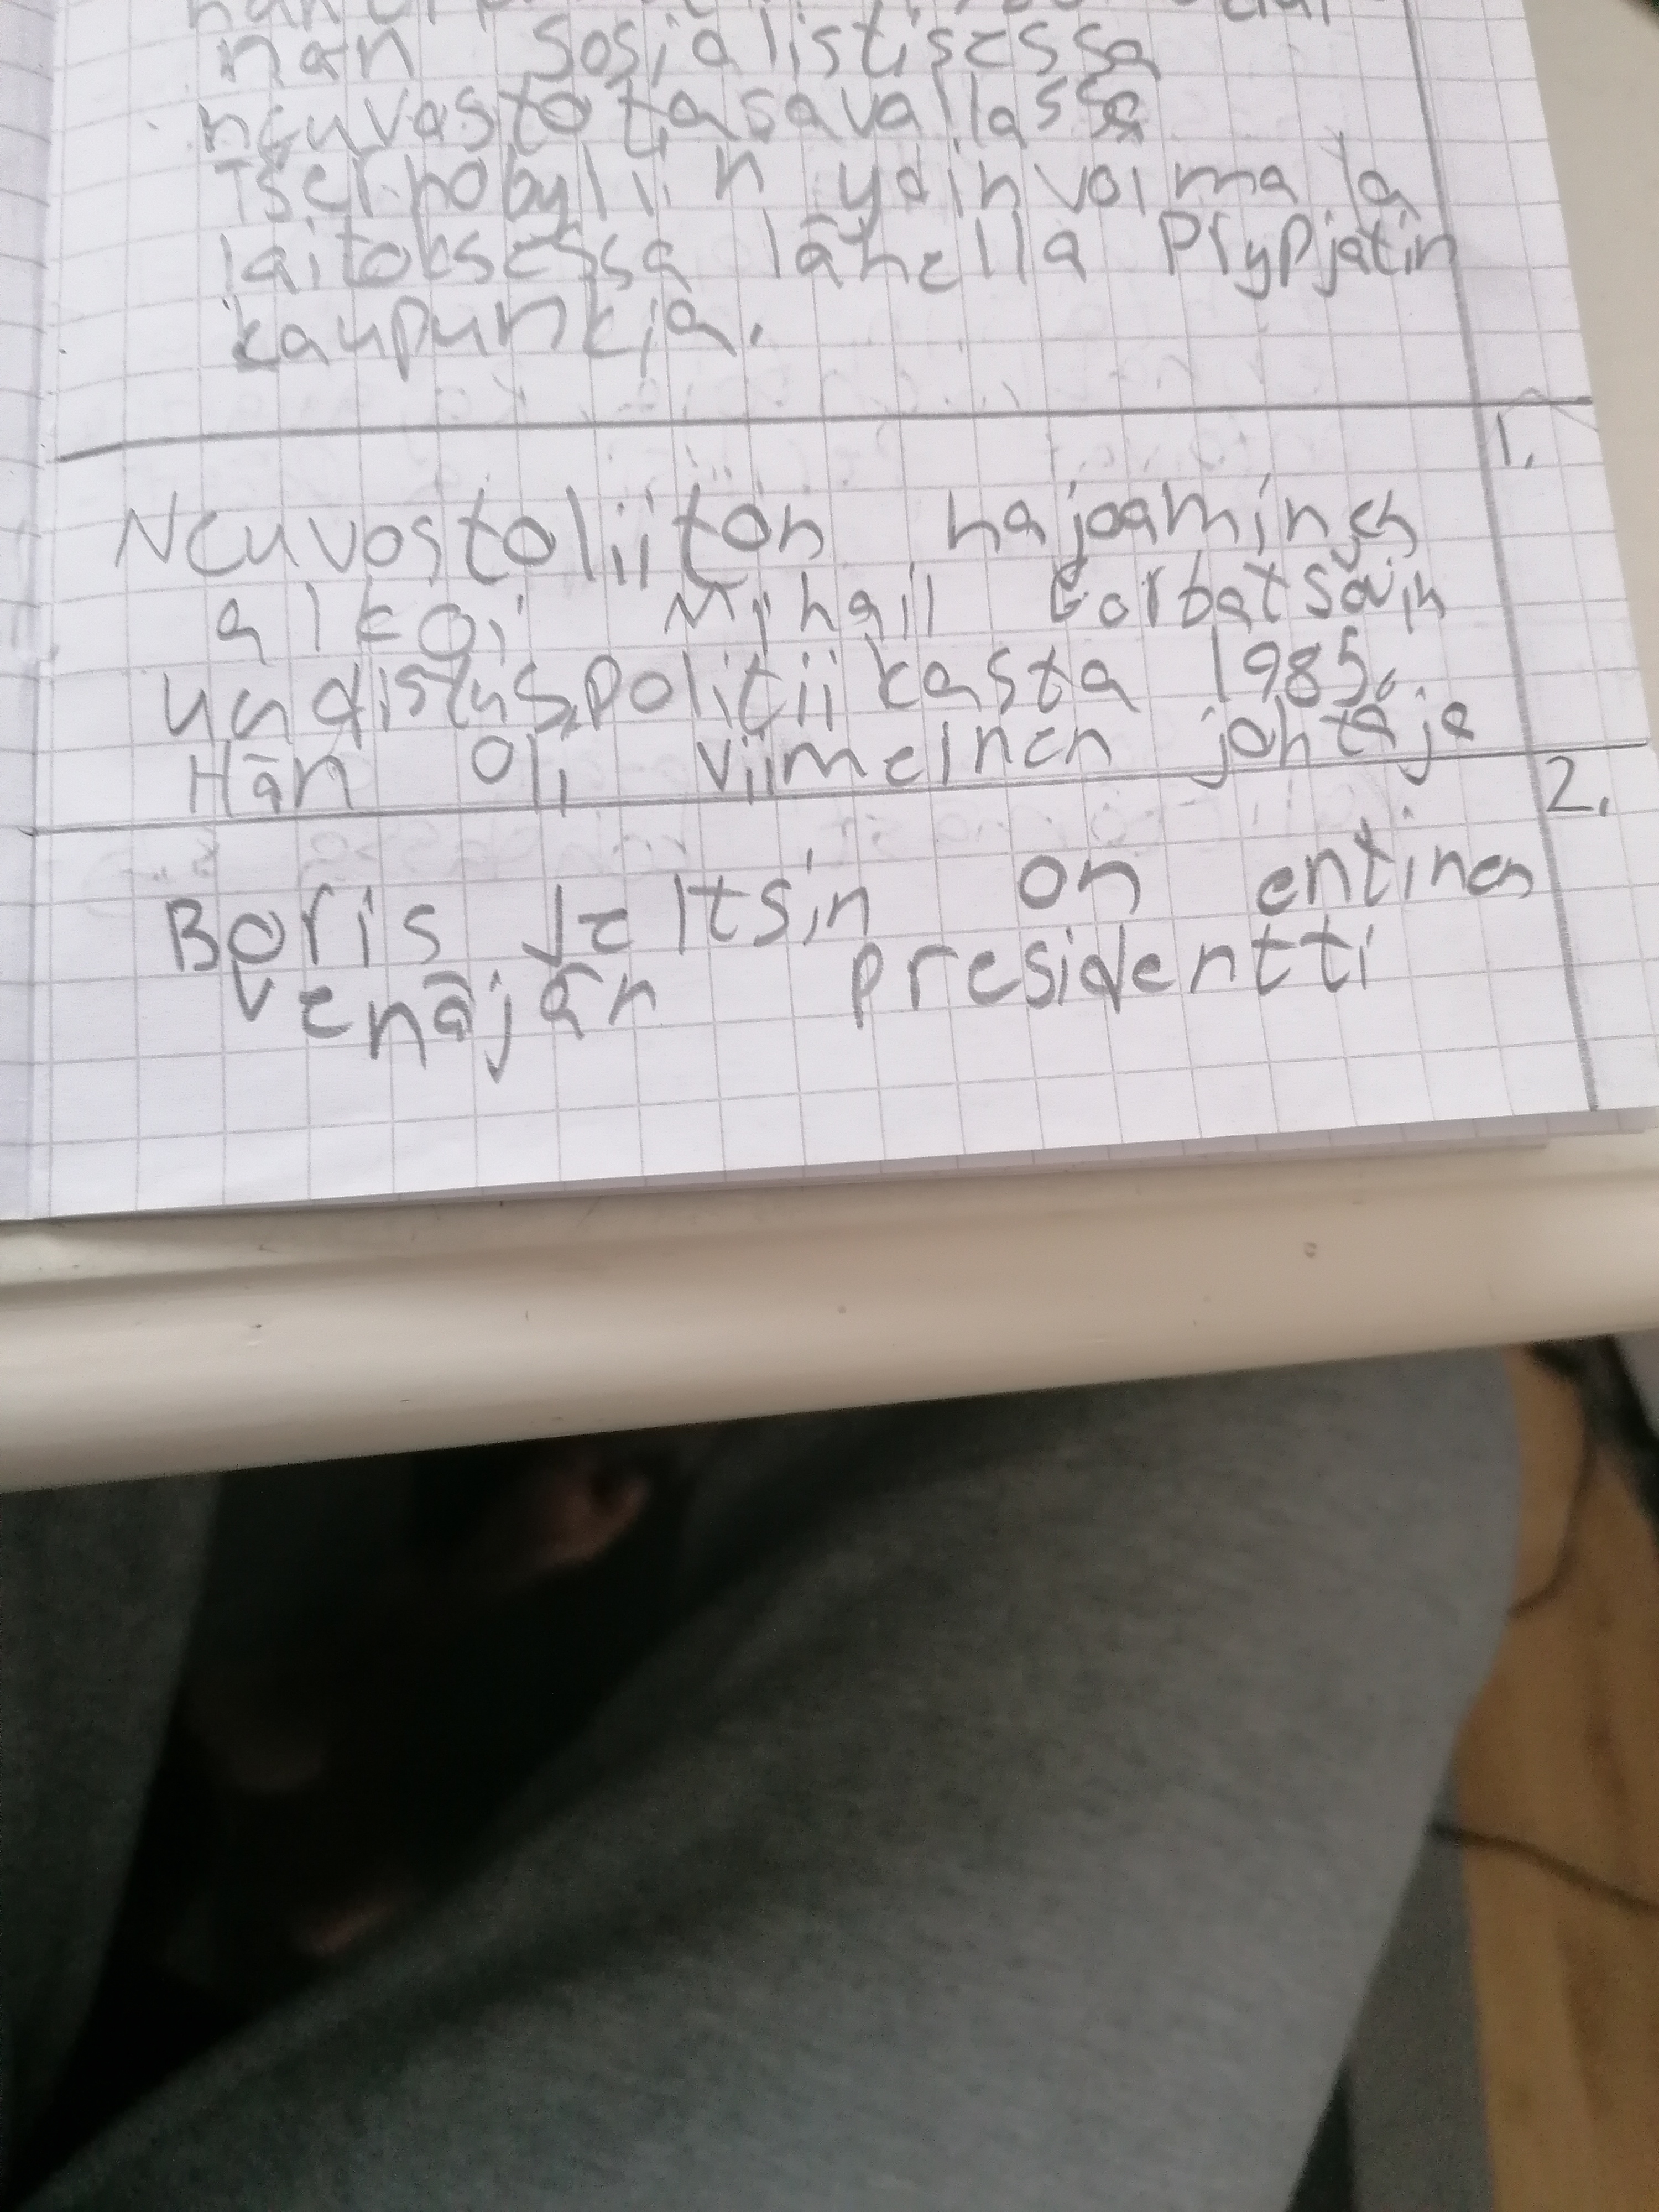 nan sosialistisessa
neuvostotasavallassa
Tsernobylin ydinvoimala
laitoksessa lähellä Prypjatin
kaupunkia.
1.
Neuvostoliiton hajoaminen
alkoi Mihail Gorbatsovin
uudistuspolitiikasta 1985.
Hän oli viimeinen johtaja
2.
Boris Jeltsin on entinen
Venäjän presidentti